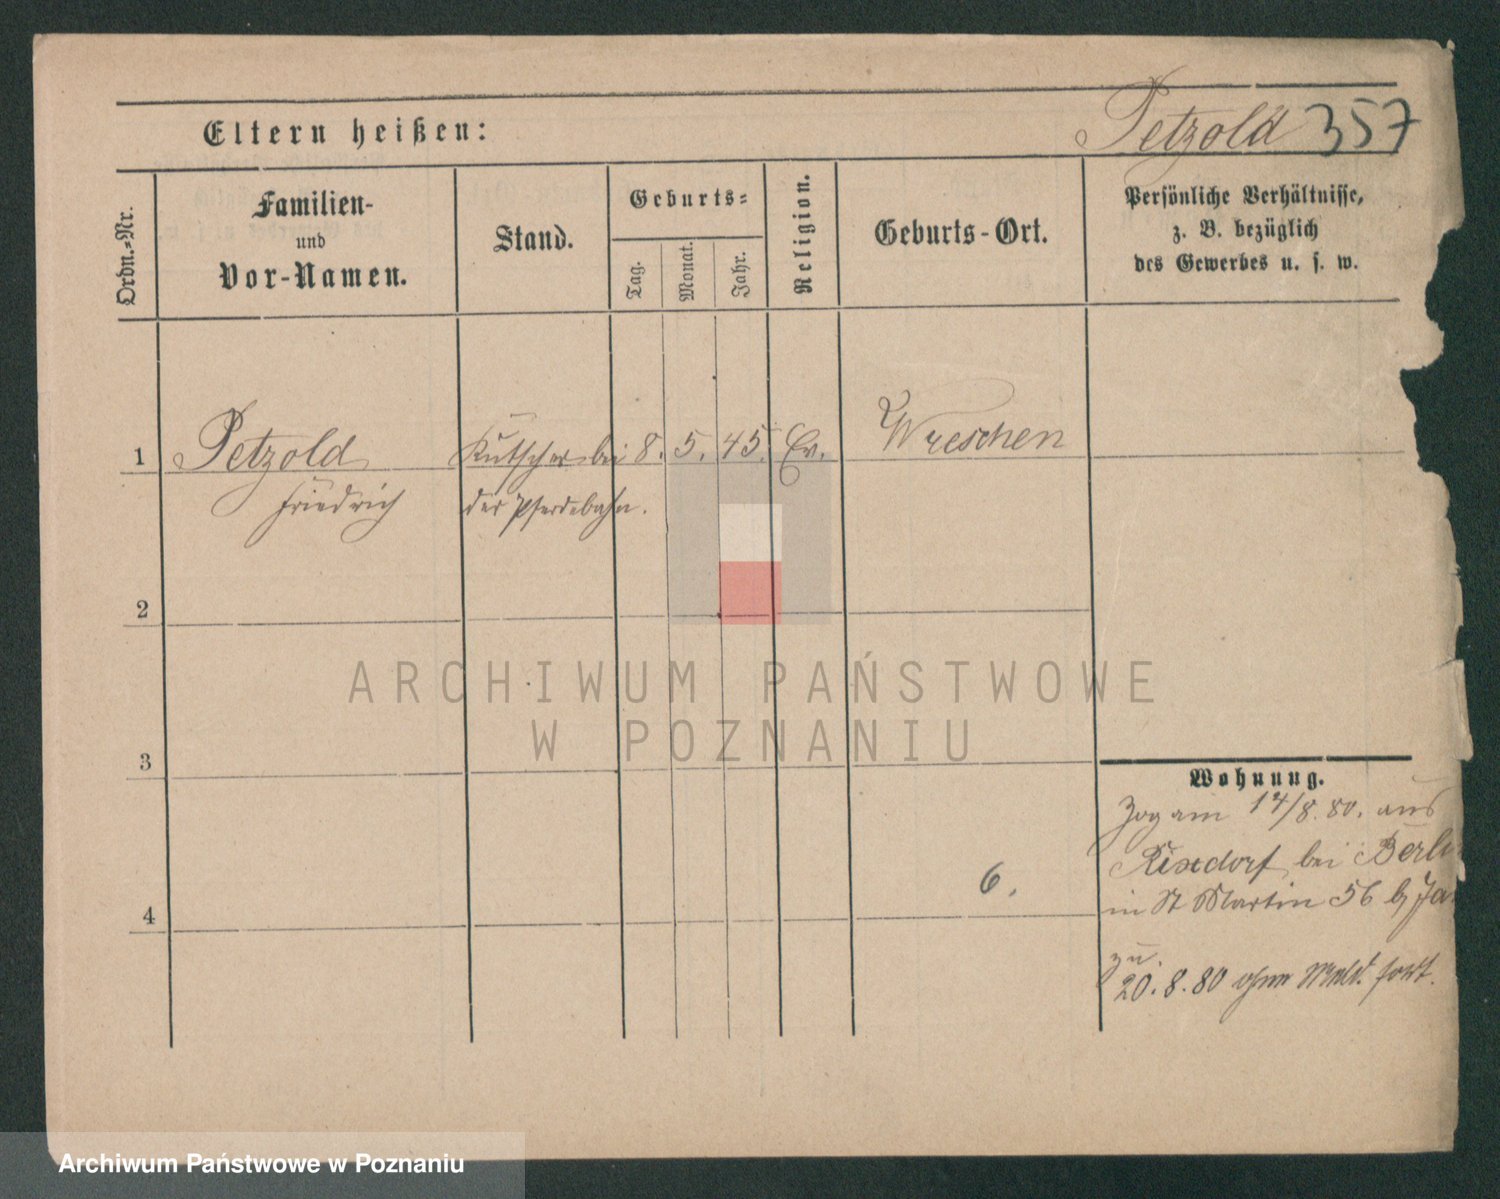 Petzold 357
Eltern heißen:
Ordn.-Nr.
Familien-
und
Vor-Namen.
Stand.
Geburts-
Tag.
Monat.
Jahr.
Religion.
Geburts-Ort.
Persönliche Verhältnisse,
z. B. bezüglich
des Gewerbes u. s. w.
1 Petzold Kutscher bei 8. 5. 45. Ev. Wreschen
Friedrich der Pferdebahn.
2
ARCHIWUM PAŃSTWOWE
W POZNANIU
3
Wohnung.
Zog am 14/8. 80. aus
Rixdorf bei Berli
in St Martin 56 b/
zu.
6.
4
20. 8. 80 ohne Meld. fort.
Archiwum Państwowe w Poznaniu